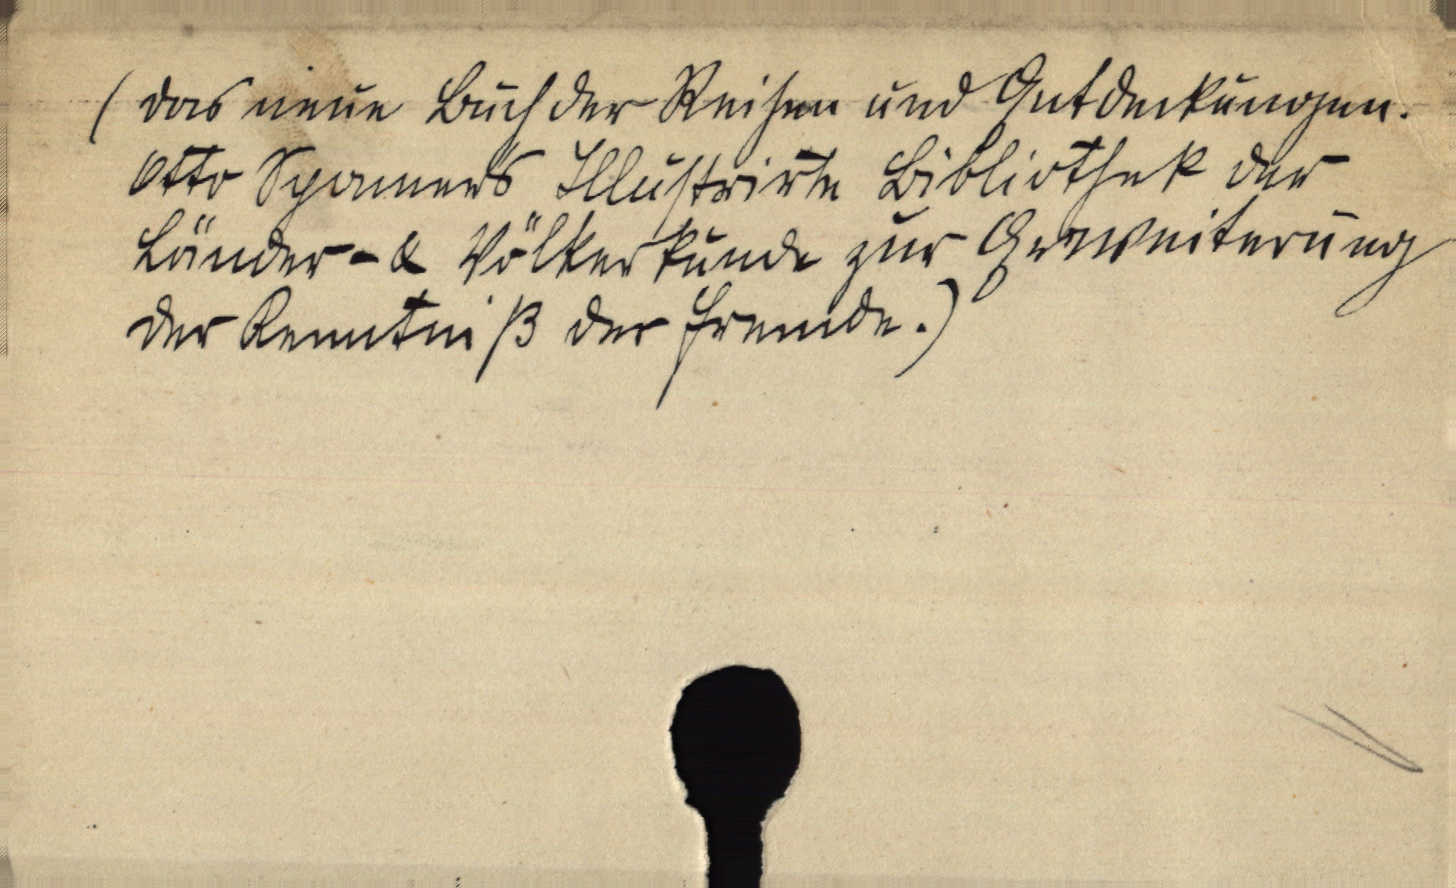 (das neue Buch der Reisen und Entdeckungen.
Otto Spamers Illustrirte Bibliothek der
Länder- & Völkerkunde zur Erweiterung
der Kenntniß der Fremde.)